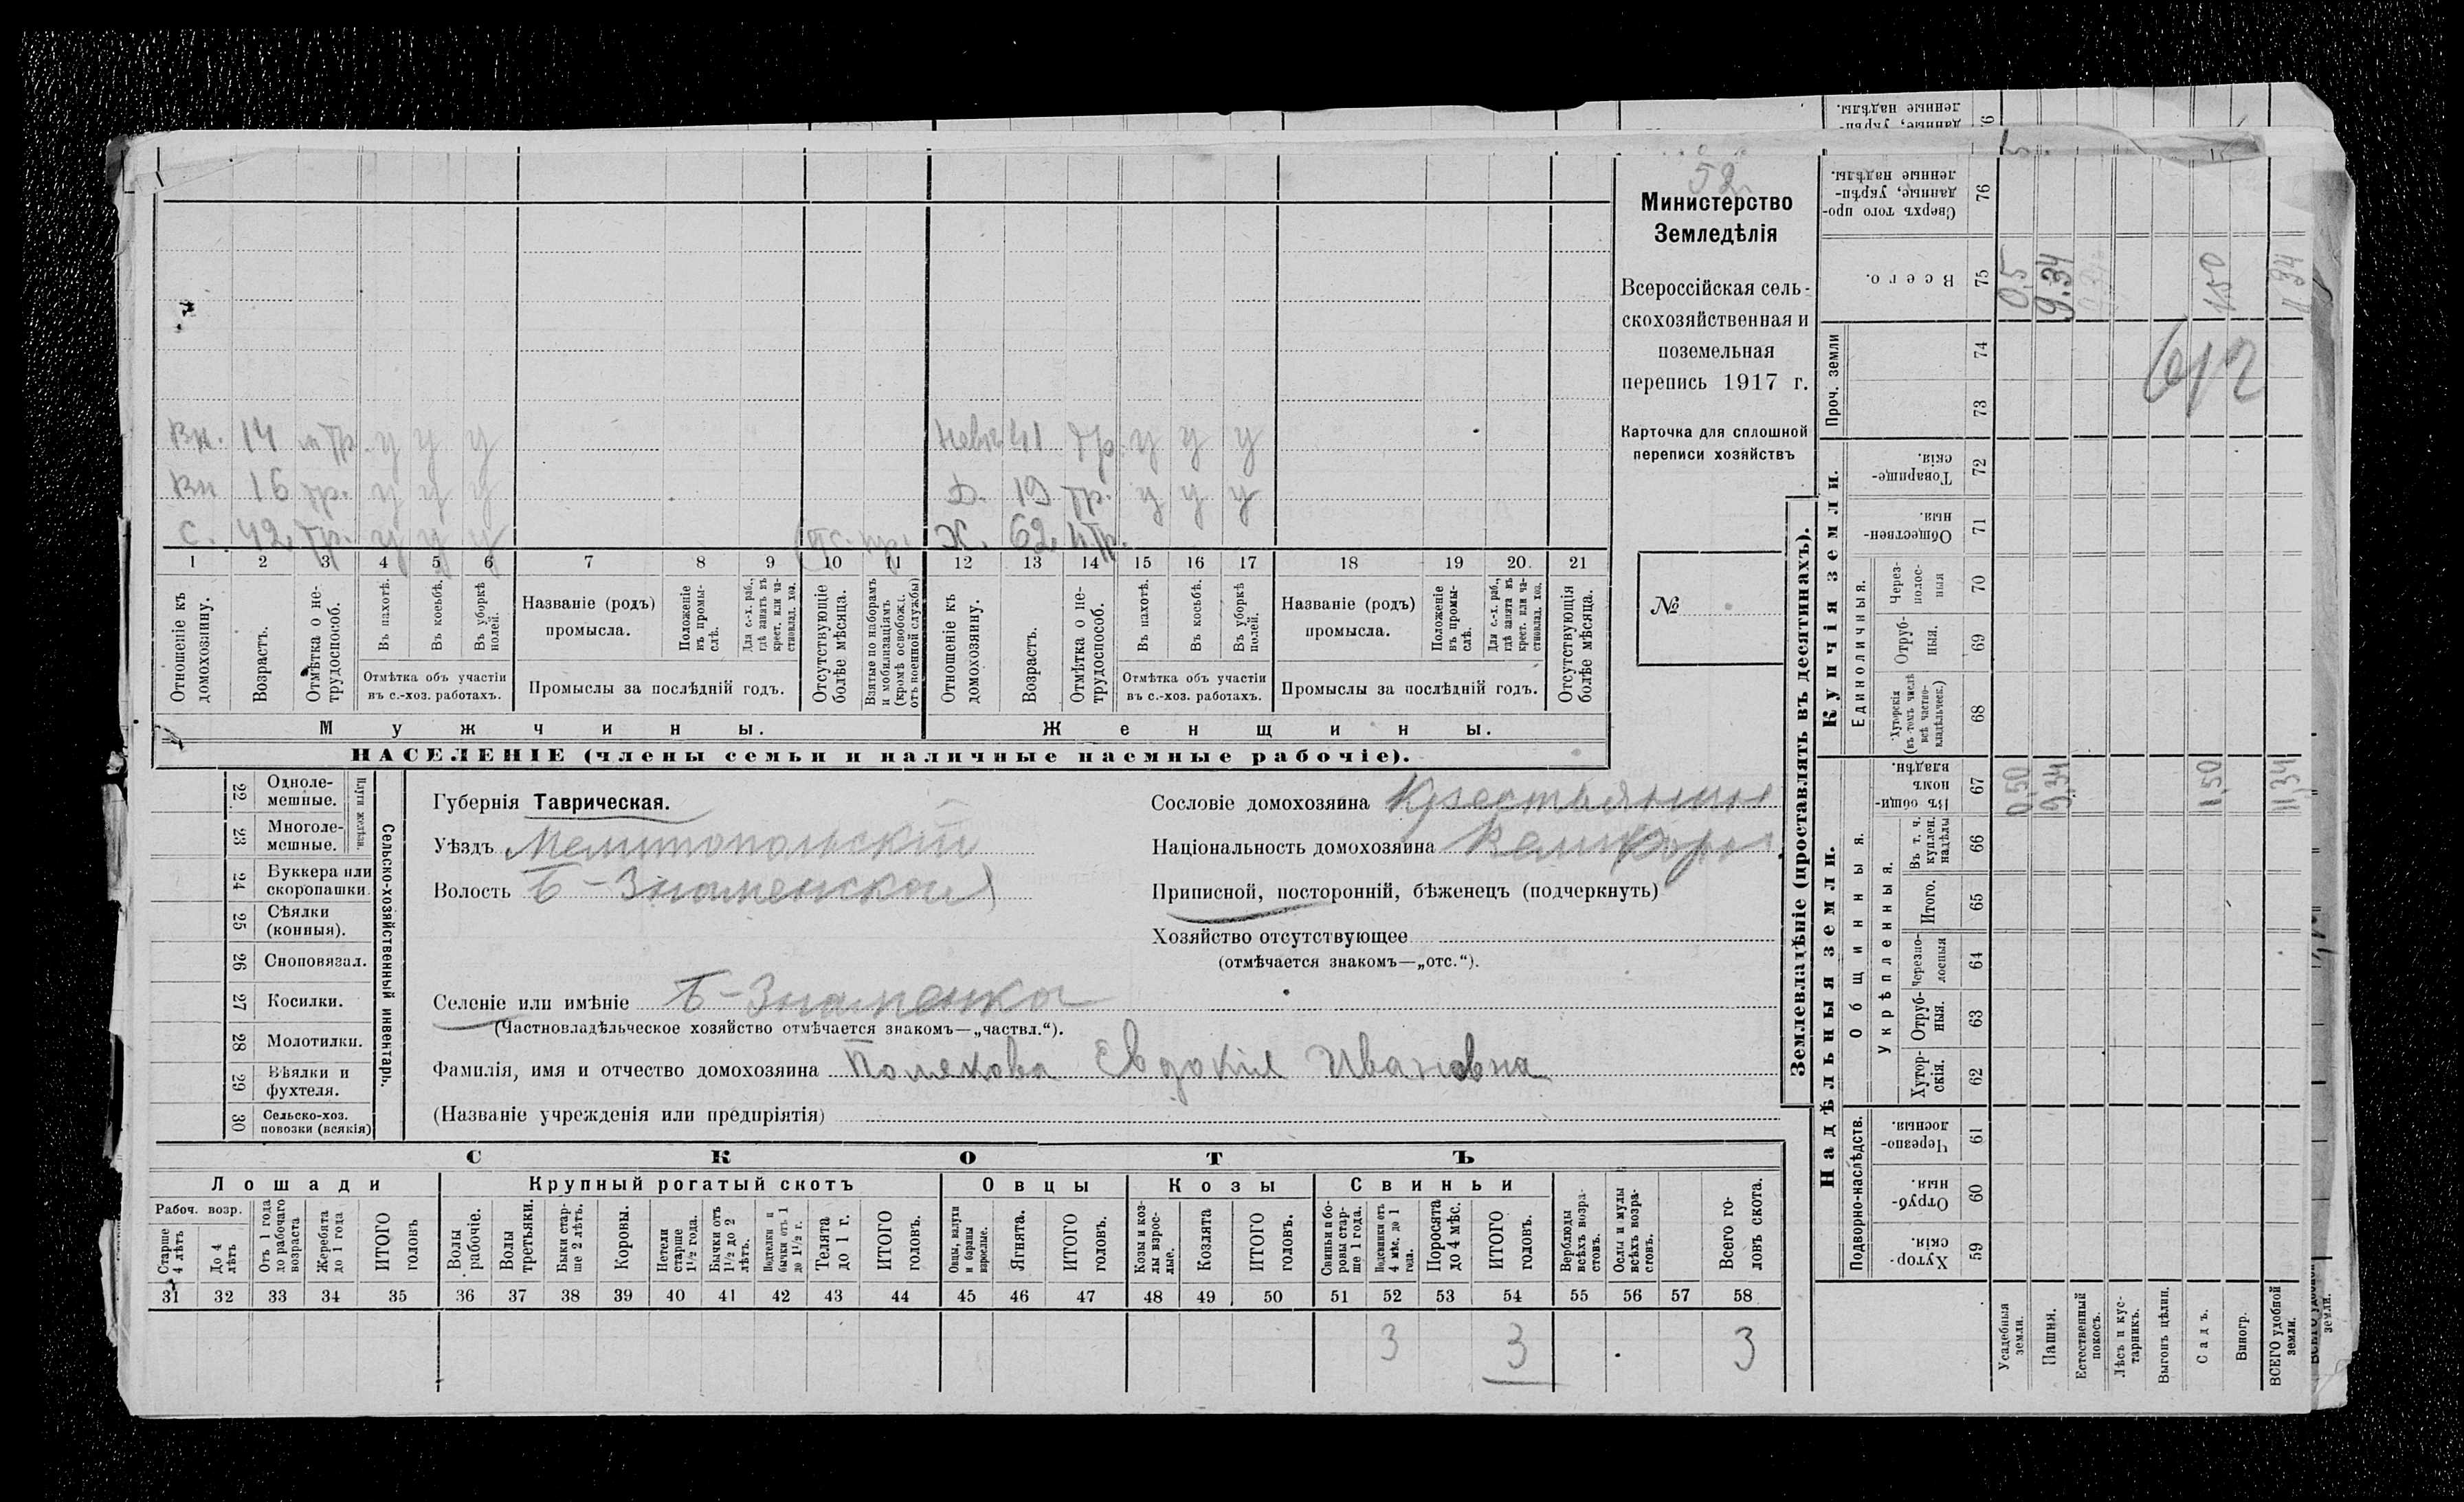 данные, укрѣп-
ленные надѣлы.
76
52.
Министерство
Земледѣлія
Всероссійская сель-
скохозяйственная и
поземельная
перепись 1917 г.
Карточка для сплошной
переписи хозяйствъ
№
Вн. 14 н тр. у у у
41 тр. у у у
Вн 16 тр. у у у
Д. 19 тр. у у у
С. 42 тр. у у у
Ж. 62 н тр.
1 2 3 4 5 6 7 8 9 10 11 12 13 14 15 16 17 18 19 20. 21
Отношеніе къ домохозяину.
Возрастъ.
Отмѣтка о не-трудоспособ.
Въ пахотѣ.
Въ косьбѣ.
Въ уборкѣ полей.
Отмѣтка объ участіи
въ с.-хоз. работахъ.
Названіе (родъ)
промысла.
Положеніе въ промы-слѣ.
Для с.-х. раб., гдѣ занятъ въ крест. или ча-стновлад. хоз.
Промыслы за послѣдній годъ.
Отсутствующіе болѣе мѣсяца.
Взятые по наборамъ и мобилизаціямъ (кромѣ освобожд. отъ военной службы)
Отношеніе къ домохозяину.
Возрастъ.
Отмѣтка о не-трудоспособ.
Въ пахотѣ.
Въ косьбѣ.
Въ уборкѣ полей.
Отмѣтка объ участіи
въ с.-хоз. работахъ.
Названіе (родъ)
промысла.
Положеніе въ промы-слѣ.
Для с.-х. раб., гдѣ занята въ крест. или ча-стновлад. хоз.
Промыслы за послѣдній годъ.
Отсутствующія болѣе мѣсяца.
Мужчины.
Женщины.
НАСЕЛЕНІЕ (члены семьи и наличные наемные рабочіе).
22 Одноле-мешные.
23 Многоле-мешные.
Плуги желѣзн.
24 Буккера или скоропашки.
25 Сѣялки (конныя).
26 Сноповязал.
27 Косилки.
28 Молотилки.
29 Вѣялки и фухтеля.
30 Сельско-хоз. повозки (всякія)
Сельско-хозяйственный инвентарь.
Губернія Таврическая.
Уѣздъ Мелитопольскій
Волость Б-Знаменская
Селеніе или имѣніе Б-Знаменка
(Частновладѣльческое хозяйство отмѣчается знакомъ—„частвл.“).
Фамилія, имя и отчество домохозяина Полехова Евдокія Ивановна
(Названіе учрежденія или предпріятія)
Сословіе домохозяина Крестьянин
Національность домохозяина
Приписной, посторонній, бѣженецъ (подчеркнуть)
Хозяйство отсутствующее
(отмѣчается знакомъ—„отс.“).
СКОТЪ
Лошади
Крупный рогатый скотъ
Овцы
Козы
Свиньи
Рабоч. возр.
Старше 4 лѣтъ
До 4 лѣтъ
Отъ 1 года до рабочаго возраста
Жеребята до 1 года
ИТОГО головъ
Волы рабочіе.
Волы третьяки.
Быки стар-ше 2 лѣтъ.
Коровы.
Нетели старше 1½ года.
Бычки отъ 1½ до 2 лѣтъ.
Подтелки и бычки отъ 1 до 1½ г.
Телята до 1 г.
ИТОГО головъ.
Овцы, валухи и бараны взрослые.
Ягнята.
ИТОГО головъ.
Козы и коз-лы взрос-лые.
Козлята
ИТОГО головъ.
Свиньи и бо-ровы стар-ше 1 года.
Подсвинки отъ 4 мѣс. до 1 года.
Поросята до 4 мѣс.
ИТОГО головъ.
Верблюды всѣхъ возра-стовъ.
Ослы и мулы всѣхъ возра-стовъ.
Всего го-ловъ скота.
31 32 33 34 35 36 37 38 39 40 41 42 43 44 45 46 47 48 49 50 51 52 53 54 55 56 57 58
3 3 3
Землевладѣніе (проставлять въ десятинахъ).
Надѣльныя земли.
Купчія земли.
Проч. земли
Подворно-наслѣдств.
Общинныя.
Укрѣпленныя.
Единоличныя.
Сверхъ того про-данные, укрѣп-ленные надѣлы. 76
Всего. 75
74
73
Товарище-скія. 72
Обществен-ныя. 71
Через-полос-ныя 70
Отруб-ныя. 69
Хуторскія (въ томъ числѣ всѣ частно-владѣльческ.) 68
Въ общин-номъ владѣн. 67
Въ т. ч. куплен. надѣлы 66
Итого. 65
Черезпо-лосныя 64
Отруб-ныя. 63
Хутор-скія. 62
Черезпо-лосныя. 61
Отруб-ныя. 60
Хутор-скія. 59
Усадебныя земли. 0,50 0,5
Пашня. 9,34 9.34
Естественный покосъ.
Лѣсъ и кус-тарникъ.
Выгонъ цѣлин.
Садъ. 1,50 1,50
Виногр.
ВСЕГО удобной земли. 11,34 11,34
612